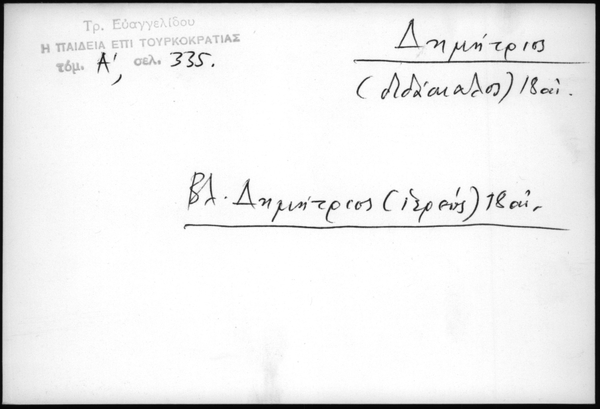 Τρ. Εὐαγγελίδου
Η ΠΑΙΔΕΙΑ ΕΠΙ ΤΟΥΡΚΟΚΡΑΤΙΑΣ
τόμ. Α', σελ. 335.
Δημήτριος
(διδάσκαλος) 18 αἰ.
Βλ. Δημήτριος (ἱερεύς) 18 αἰ.